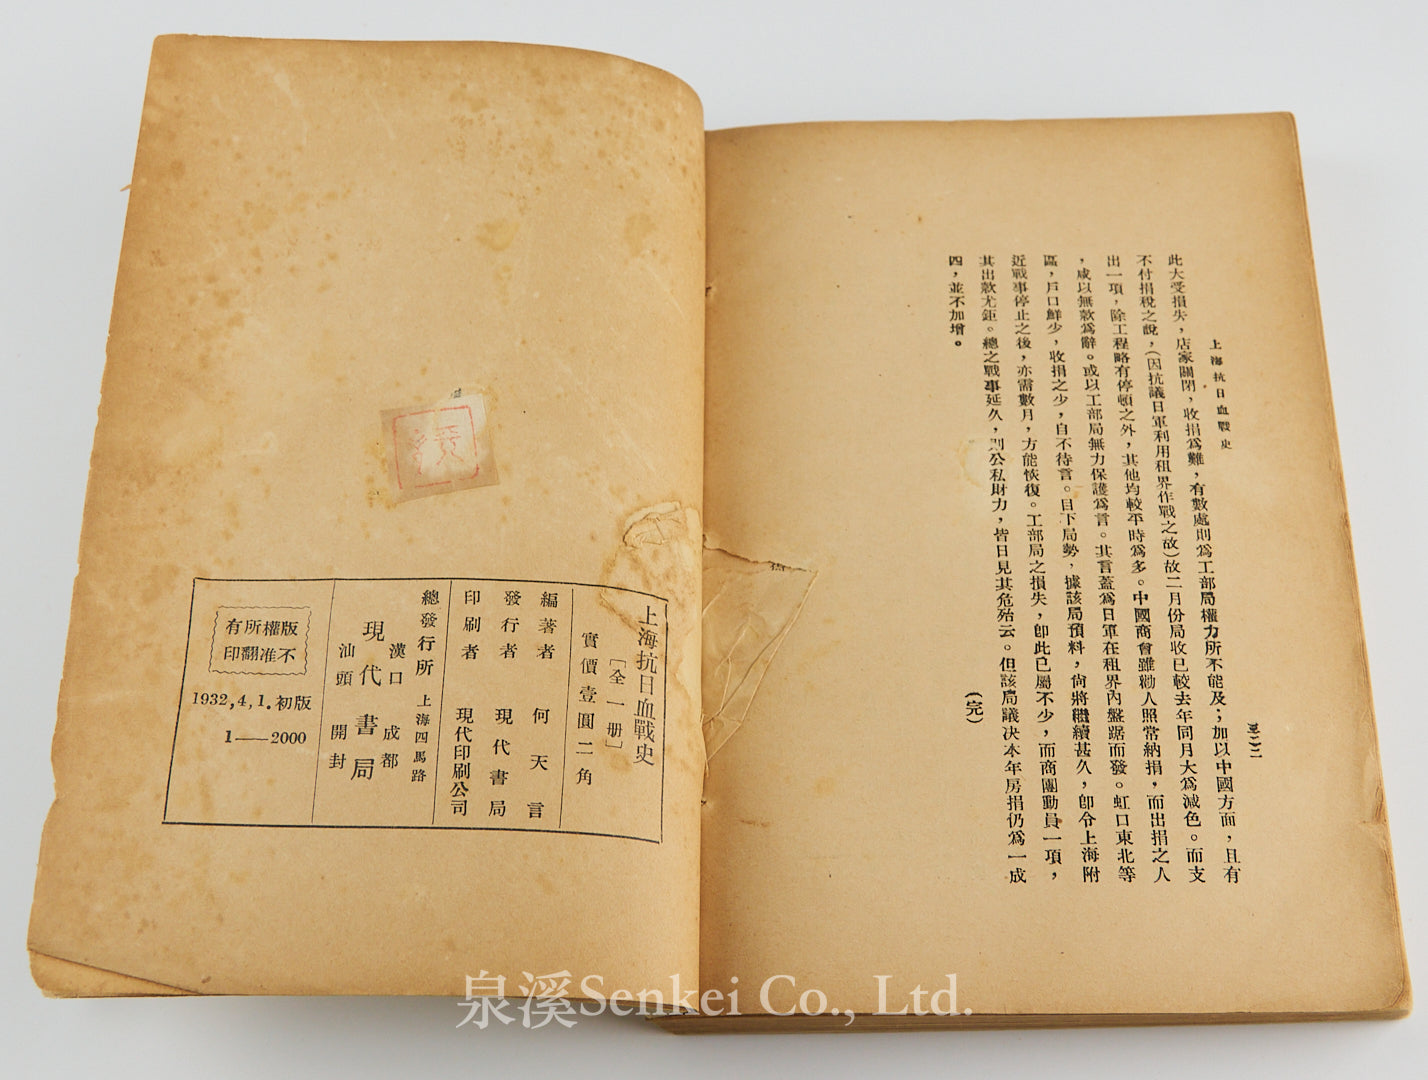 上海抗日血戰史
此大受損失，店家關閉，收捐爲難，有數處則爲工部局權力所不能及；加以中國方面，且有
不付捐稅之說，(因抗議日軍利用租界作戰之故)故二月份局收已較去年同月大爲減色。而支
出一項，除工程略有停頓之外，其他均較平時爲多。中國商會雖勸人照常納捐，而出捐之人
，咸以無款爲辭。或以工部局無力保護爲言。其言蓋爲日軍在租界內盤踞而發。虹口東北等
區，戶口鮮少，收捐之少，自不待言。目下局勢，據該局預料，尙將繼續甚久，卽令上海附
近戰事停止之後，亦需數月，方能恢復。工部局之損失，卽此已屬不少，而商團動員一項，
其出款尤鉅。總之戰事延久，則公私財力，皆日見其危殆云。但該局議決本年房捐仍爲一成
四，並不加增。
(完)
上海抗日血戰史
〔全一册〕
實價壹圓二角
編著者 何天言
發行者 現代書局
印刷者 現代印刷公司
總發行所 上海四馬路
現代書局
漢口 成都
汕頭 開封
版權所有
不准翻印
1932,4,1.初版
1——2000
泉溪Senkei Co., Ltd.